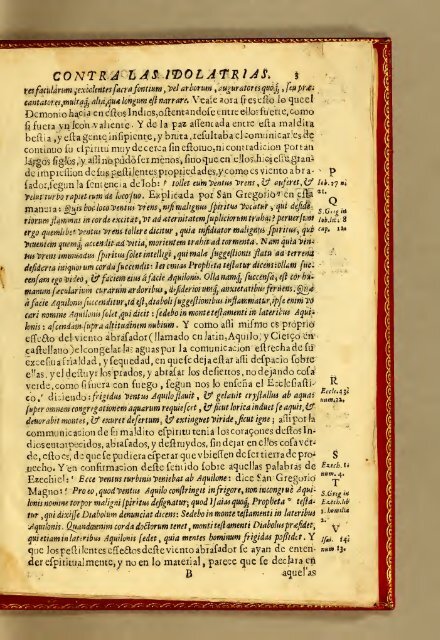 CONTRA LAS IDOLATRIAS. 3
res facularum, excolentes sacra fontium, vel arborum, auguratores quoq́, seu præ-
cantatores, multaq́, alia, qua longum est narrare. Vease aora si es esto lo que el
Demonio hacia en estos Indios, ostentandose entre ellos fuerte, como
si fuera vn leon valiente. Y de la paz assentada entre esta maldita
bestia, y esta gente insipiente, y bruta, resultaba el comunicarles de
continuo su espiritu muy de cerca sin estoruo, ni contradicion por tan
largos siglos, y assi no pudo ser menos, sino que en ellos hiciesse gran-
de impression de sus pestilentes propiedades, y como es viento abra-
sador, segun la sentencia de Iob: P tollet eum ventus vrens, & auferet, &
velut turbo rapiet eum de loco suo. Explicada por San Gregorio Q en esta
manera: Quis hoc loco ventus vrens, nisi malignus spiritus vocatur, qui deside-
riorum flammas in corde excitat, vt ad æternitatem supliciorum trahat? peruersum
ergo quemlibet ventus vrens tollere dicitur, quia insidiator malignus spiritus, qui
viuentem quemq́ accendit ad vitia, morientem trahit ad tormenta. Nam quia ven-
tus vrens immundus spiritus solet intelligi, qui malæ suggestionis flatu ad terrena
desideria iniquorum corda succendit: Ieremias Propheta testatur dicens: ollam suc-
censam ego video, & faciem eius à facie Aquilonis. Olla namq́ succensa, est cor hu-
manum sæcularium curarum ardoribus, desideriorumq́, anxietatibus feruens. Quæ
à facie Aquilonis succenditur, id est, diaboli suggestionibus inflammatur, ipse enim vo
cari nomine Aquilonis solet, qui dicit: sedebo in monte testamenti in lateribus Aqui-
lonis: ascendam supra altitudinem nubium. Y como assi mismo es proprio
effecto del viento abrasador (llamado en latin, Aquilo, y Cierço en
castellano) el congelar las aguas por la comunicacion estrecha de su
excessiua frialdad, y sequedad, en que se deja estar assi despacio sobre
ellas, y el destuyr los prados, y abrasar los desiertos, no dejando cosa
verde, como si fuera con fuego, segun nos lo enseña el Ecclesiasti-
co, R diciendo: frigidus ventus Aquilo flauit, & gelauit crystallus ab aquas
super omnem congregationem aquarum requieset, & sicut lorica induet se aquis, &
deuorabit montes, & exuret desertum, & extinguet viride, sicut igne; assi por la
communicacion de su maldito espiritu tenia los coraçones destos In-
dios entorpecidos, abrasados, y destruydos, sin dejar en ellos cosa ver-
de, esto es, de que se pudiera esperar que vbiessen de ser tierra de pro-
uecho. Y en confirmacion deste sentido sobre aquellas palabras de
Ezechiel: S Ecce ventus turbinis veniebat ab Aquilone: dice San Gregorio
Magno: T Pro eo, quod ventus Aquilo constringit in frigore, non incongruè Aqui-
lonis nomine torpor maligni spiritus designatur; quod Isaias quoq́, Propheta V testa-
tur, qui dixisse Diabolum denunciat dicens: Sedebo in monte testamenti in lateribus
Aquilonis. Quandoenim corda doctorum tenet, monti testamenti Diabolus præsidet,
qui etiam in lateribus Aquilonis sedet, quia mentes hominum frigidas possidet. Y
que los pestilentes effectos deste viento abrasador se ayan de enten-
der espiritualmente, y no en lo material, parece que se declara en
B aquellas
P
Iob. 27 nu
21.
Q
S. Greg in
Iob. lib. 18
cap. 12
R
Eccle. 43.
num. 22.
S
Ezech. 1.
num. 4.
T
S. Greg in
Ezech. lib
1. homilia
2.
V
Isai. 14.
num 13.